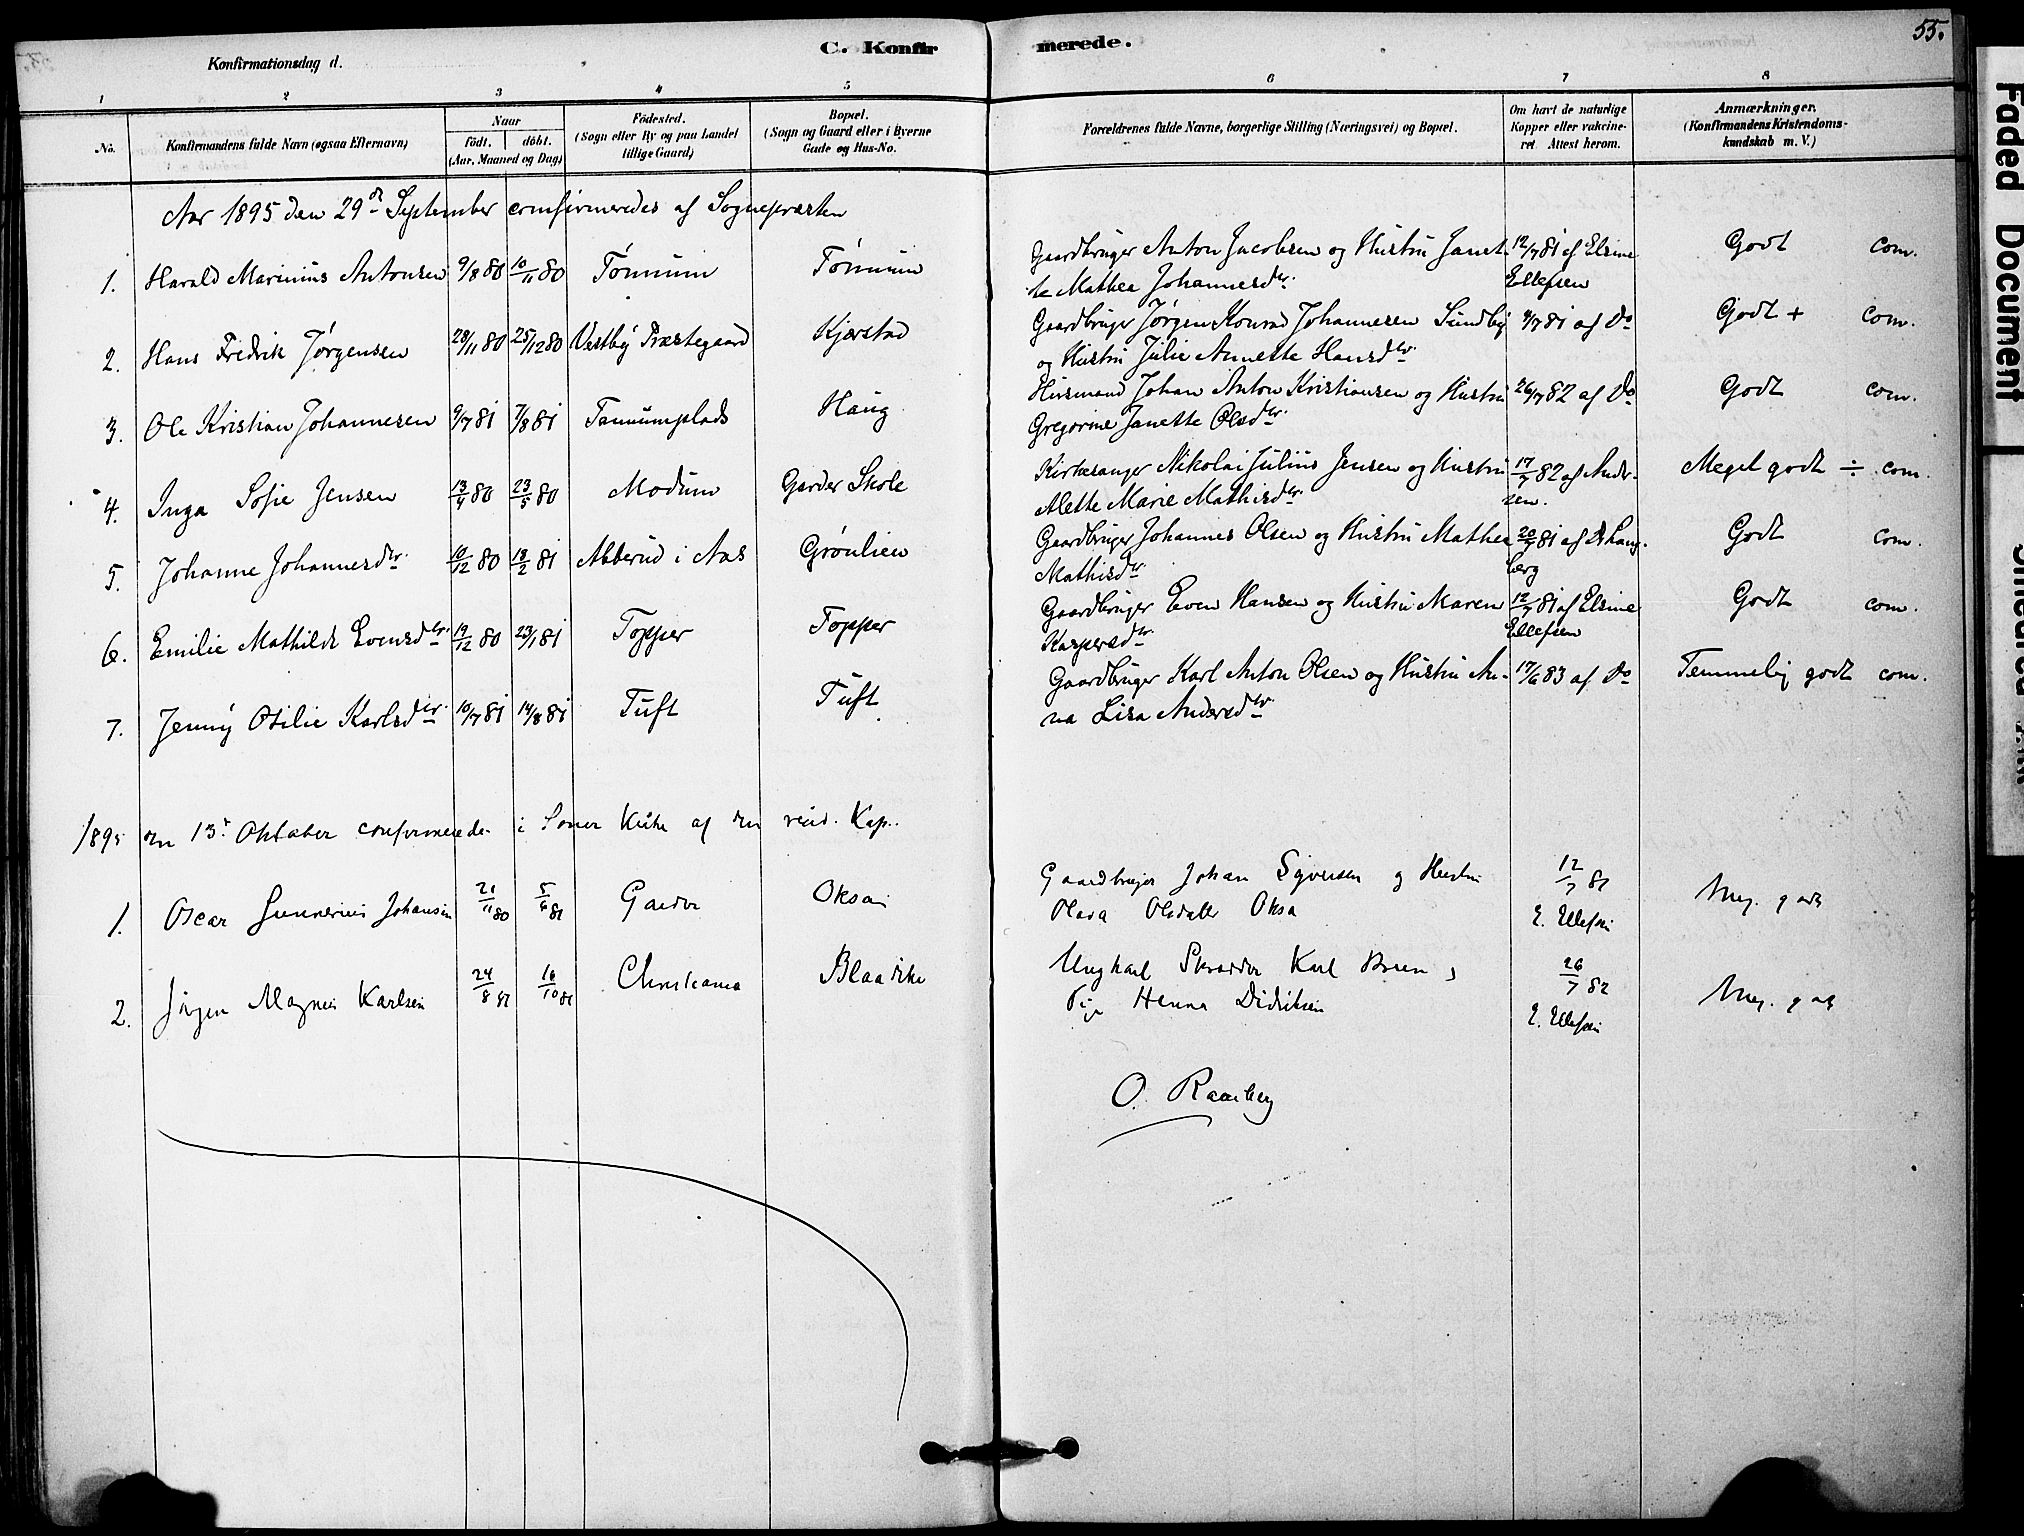 C. Konfirmerede.
55.
Konfirmationsdag d.
1 2 3 4 5 6 7 8
No.
Konfirmandens fulde Navn (ogsaa Efternavn)
Naar
födt. döbt.
(Aar, Maaned og Dag)
Födested.
(Sogn eller By og paa Landet
tillige Gaard)
Bopæl.
(Sogn og Gaard eller i Byerne
Gade og Hus-No.
Forældrenes fulde Navne, borgerlige Stilling (Næringsvei) og Bopæl.
Om havt de naturlige
Kopper eller vakcine-
ret. Attest herom.
Anmærkninger.
(Konfirmandens Kristendoms-
kundskab m. V.)
Aar 1895 den 29de September confirmeredes af Sognepræsten
1. Harald Marinius Antonsen 9/8 80 10/11 80 Tømmum Tømmum Gaardbruger Anton Jacobsen og Hustru Janet- 12/7 81 af Elsine Godt com.
te Mathea Johannesdtr. Ellefsen
2. Hans Fredrik Jørgensen 28/11 80 25/12 80 Vestby Præstegaard Kjærstad Gaardbruger Jørgen Konrad Johannesen Sundby 9/7 81 af Do Godt + com.
og Hustru Julie Annette Hansdtr.
3. Ole Kristian Johannesen 9/7 81 7/8 81 Tannumplads Haug Husmand Johan Anton Kristiansen og Hustru 26/7 82 af Do Godt com.
Gregorine Janette Olsdtr.
4. Inga Sofie Jensen 13/4 80 23/5 80 Modum Garder Skole Kirkesanger Nikolai Julius Jensen og Hustru 17/7 82 af Ander- Meget godt ÷ com.
Alette Marie Mathisdtr. sen.
5. Johanne Johannesdtr. 10/12 80 13/2 81 Abberud i Aas Grønlien Gaardbruger Johannes Olsen og Hustru Mathea 20/7 81 af Dr. Lang- Godt com.
Mathisdtr. berg
6. Emilie Mathilde Evensdtr. 19/12 80 23/1 81 Topper Topper Gaardbruger Even Hansen og Hustru Maren 12/7 81 af Elsine Godt com.
Kaspersdtr. Ellefsen
7. Jenny Otilie Karlsdtr. 10/7 81 14/8 81 Tuft Tuft Gaardbruger Karl Anton Olsen og Hustru An- 17/6 83 af Do Temmelig godt com.
na Lisa Andersdtr.
1895 den 13de Oktober confirmerede i Soner Kirke af den resid. Kap.
1. Oscar Gunnerius Johansen 21/11 80 5/6 81 Garder Oksa Gaardbruger Johan Syversen og Hustru 12/7 81 Meg. godt
Olava Olsdatter Oksa E. Ellefsen
2. Jørgen Magnus Karlsen 24/8 81 16/10 81 Christiania Ungkarl Skrædder Karl
Pige Hanna Didriksen 26/7 82 E. Ellefsen Meg. godt
O. Raanberg
Faded Document